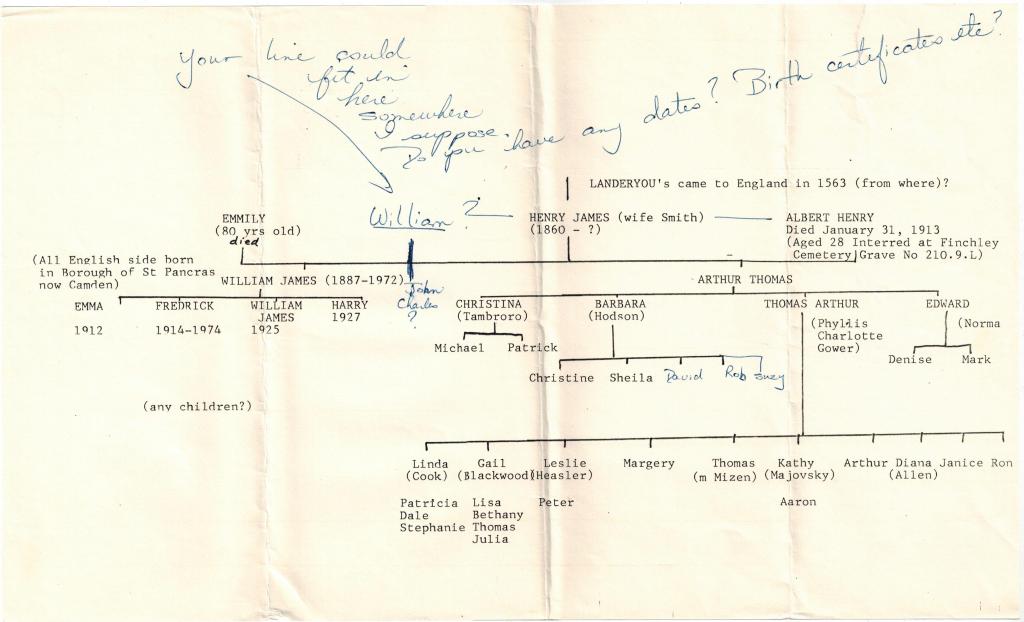 Your line could
fit in
here
somewhere
I suppose.
Do you have any dates? Birth certificates etc?
LANDERYOU's came to England in 1563 (from where)?
EMMILY
(80 yrs old)
died
William ?
HENRY JAMES (wife Smith)
(1860 - ?)
ALBERT HENRY
Died January 31, 1913
(Aged 28 Interred at Finchley
Cemetery Grave No 210.9.L)
(All English side born
in Borough of St Pancras
now Camden)
WILLIAM JAMES (1887-1972)
John
Charles
?
ARTHUR THOMAS
EMMA
1912
FREDRICK
1914-1974
WILLIAM
JAMES
1925
HARRY
1927
CHRISTINA
(Tambroro)
BARBARA
(Hodson)
THOMAS ARTHUR
(Phyllis
Charlotte
Gower)
EDWARD
(Norma
Michael Patrick
Denise Mark
Christine Sheila David Rob Suzy
(any children?)
Linda
(Cook)
Gail
(Blackwood)
Leslie
(Heasler)
Margery
Thomas
(m Mizen)
Kathy
(Majovsky)
Arthur
Diana
(Allen)
Janice
Ron
Patricia
Dale
Stephanie
Lisa
Bethany
Thomas
Julia
Peter
Aaron